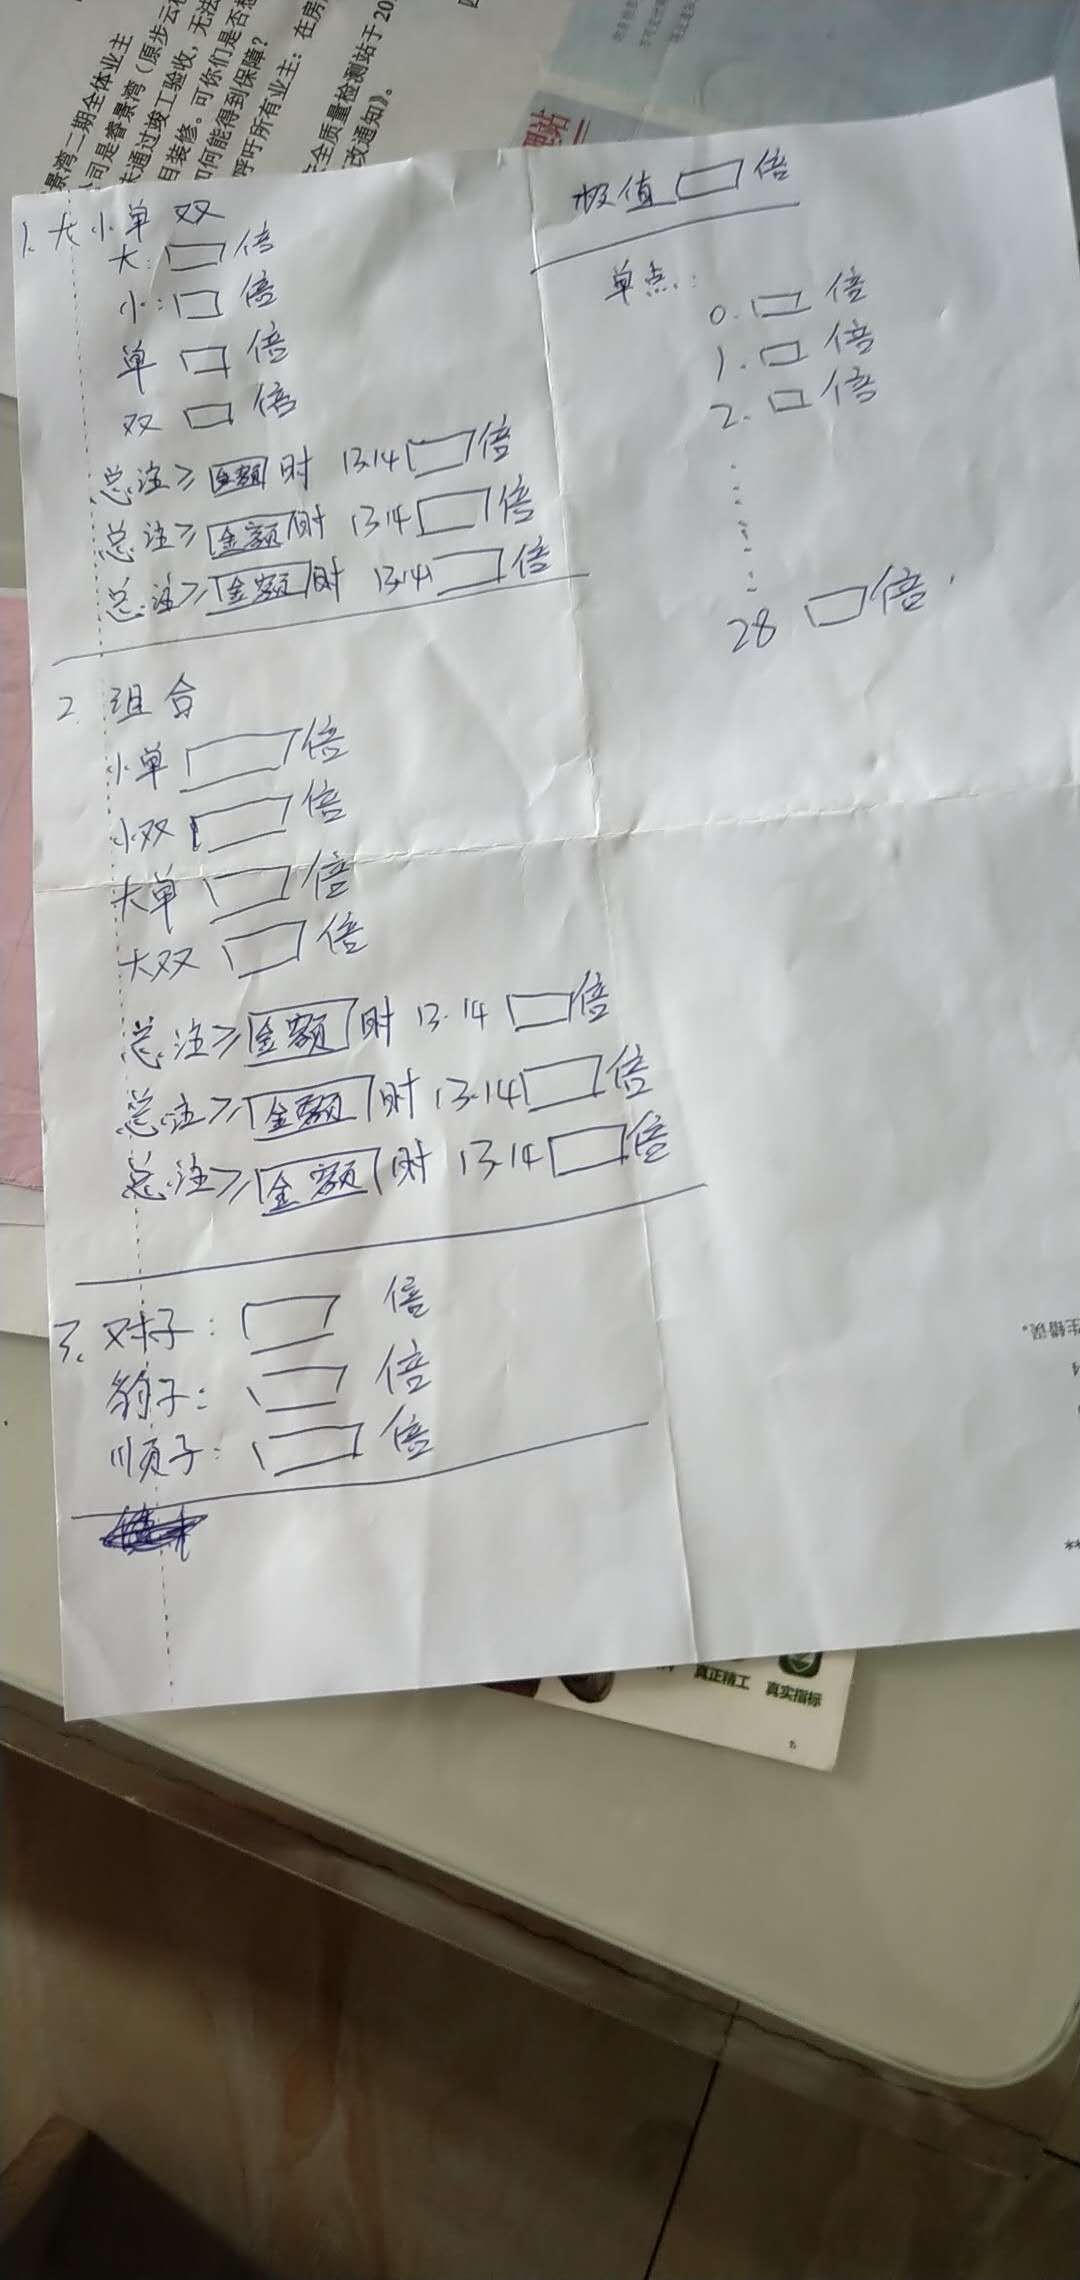 景湾二期全体业主
司是睿景湾（原步云
未通过竣工验收，无法
目装修。可你们是否
如何能得到保障？
呼吁所有业主：在房
全质量检测站于20
改通知》。
1. 大小单双
大：□倍
小：□倍
单 □倍
双 □倍
总注≥ 金额 时 13.14 □倍
总注≥ 金额 时 13.14 □倍
总注≥ 金额 时 13.14 □倍
2. 组合
小单 □倍
小双 □倍
大单 □倍
大双 □倍
总注≥ 金额 时 13.14 □倍
总注≥ 金额 时 13.14 □倍
总注≥ 金额 时 13.14 □倍
3. 对子：□倍
豹子：□倍
顺子：□倍
极值 □倍
单点：
0. □倍
1. □倍
2. □倍
28 □倍
生错误。
**
真正精工 真实指标